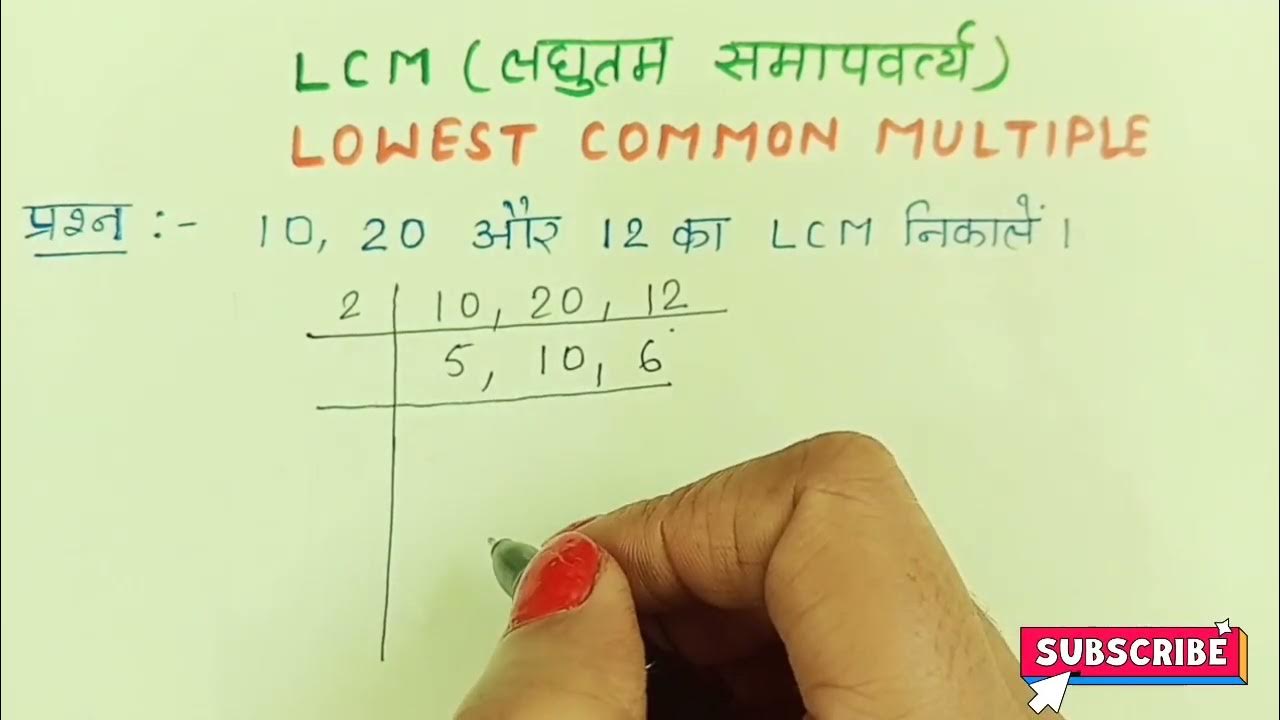 LCM (लघुतम समापवर्त्य)
LOWEST COMMON MULTIPLE
प्रश्न :- 10, 20 और 12 का LCM निकालें।
2 | 10, 20, 12
5, 10, 6
SUBSCRIBE